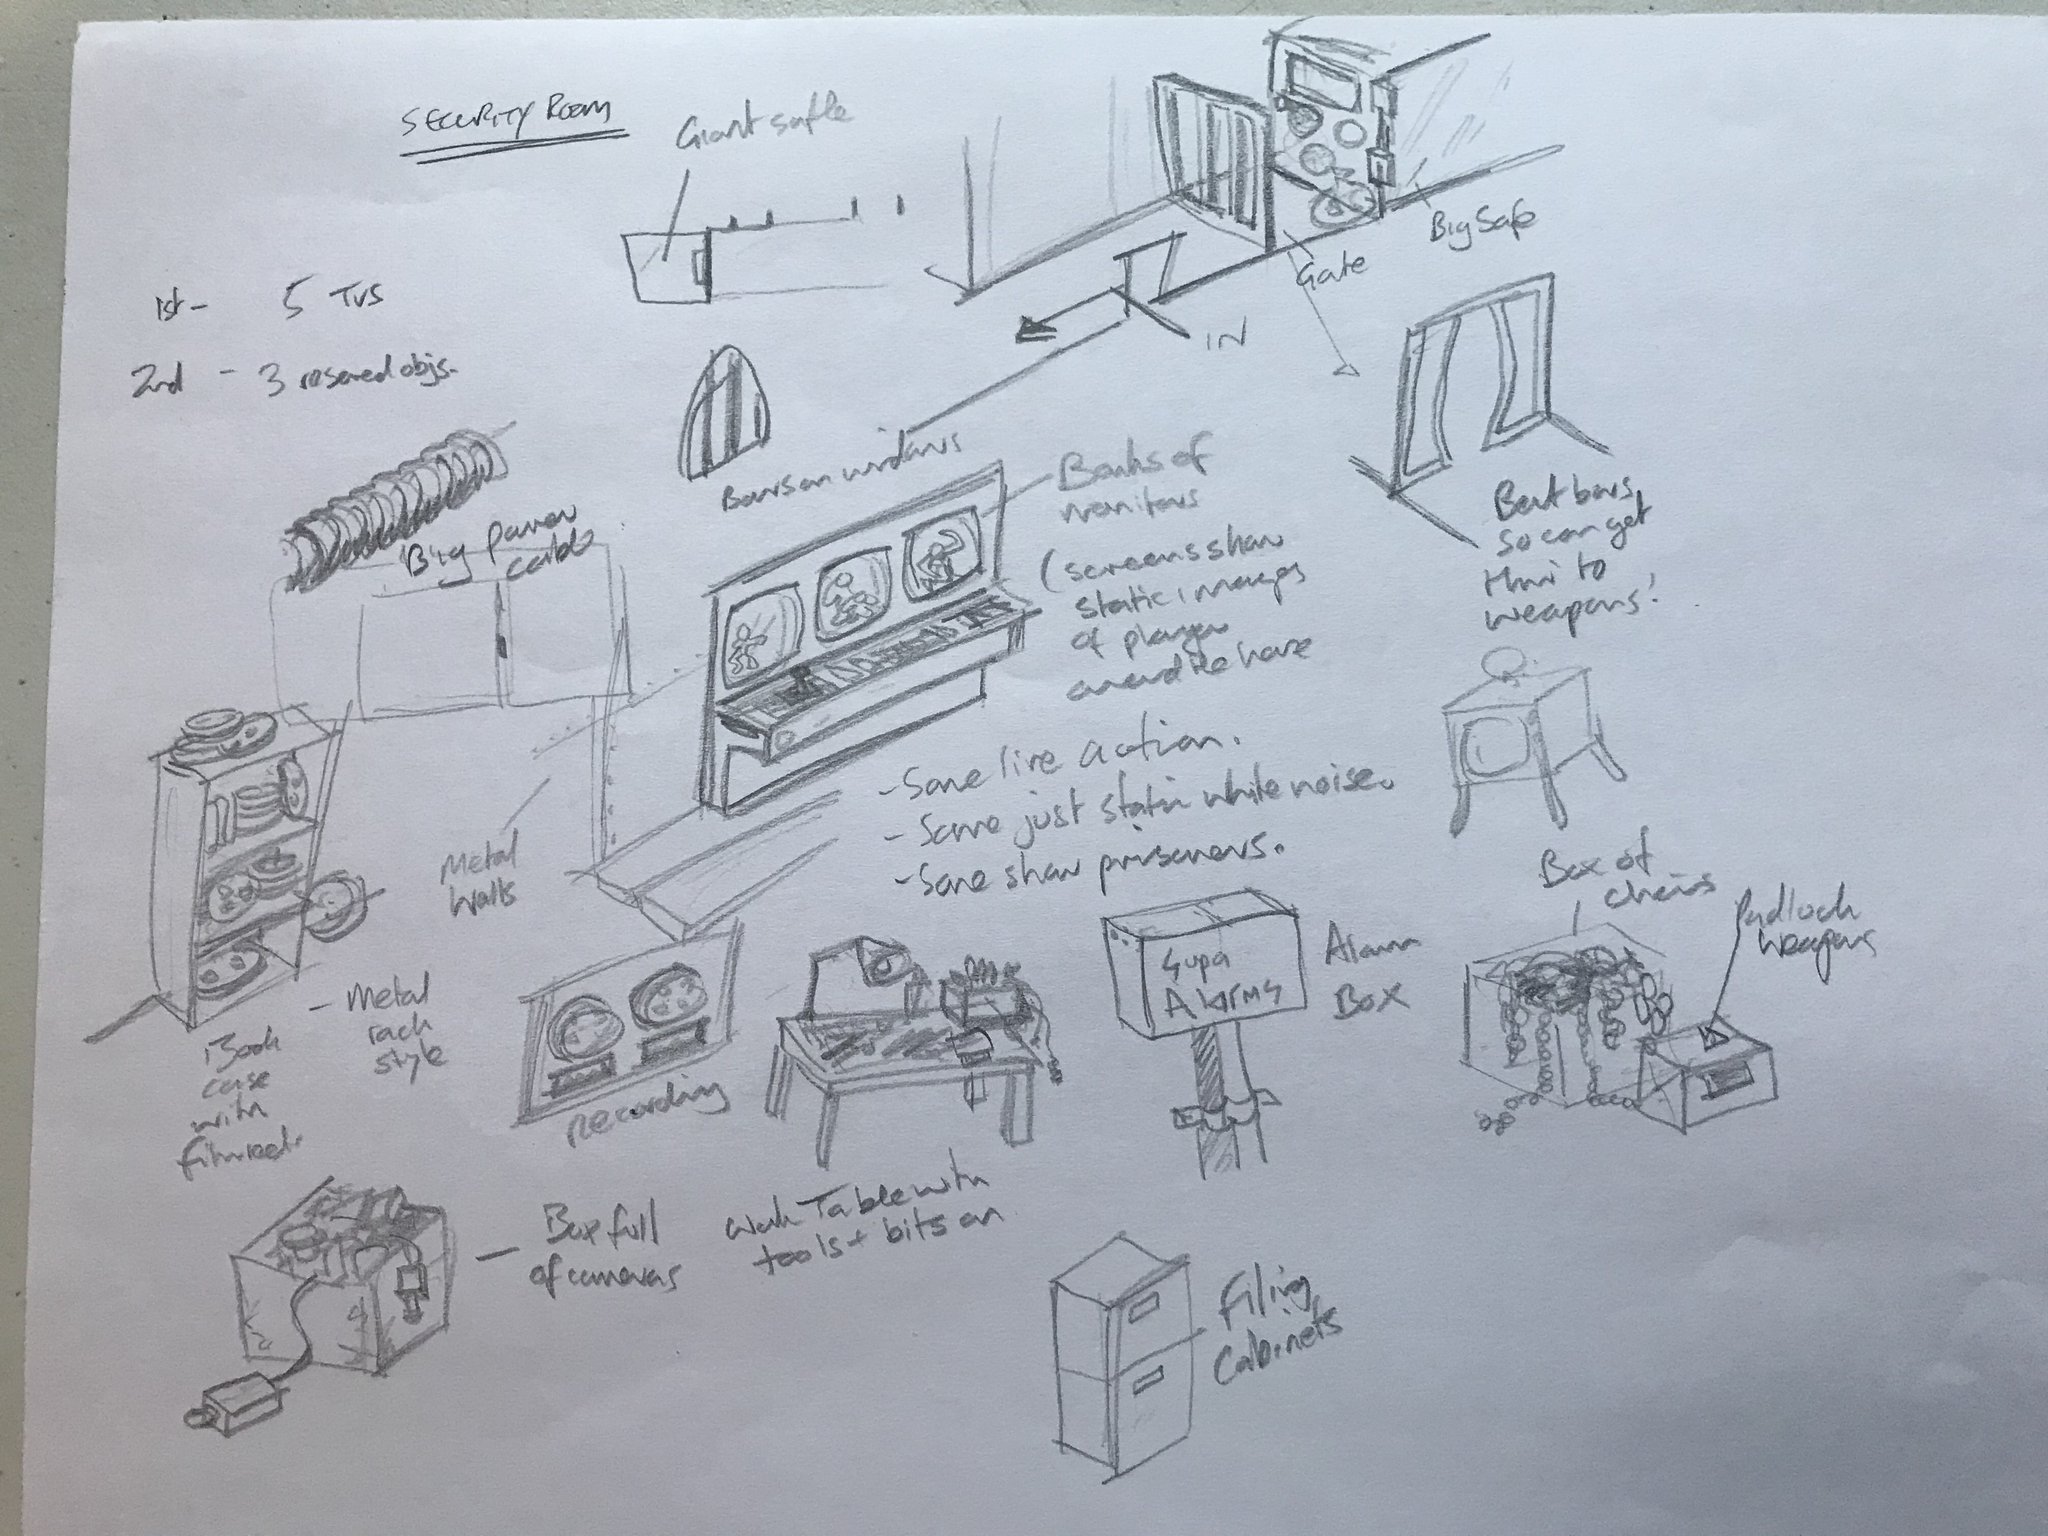 SECURITY ROOM
Giant safle
Big Safe
Gate
IN
1st - 5 TVs
2nd - 3 reserved objs.
Bars on windows
Banks of
monitors
(screens show
static images
of player
around the house
- Some live action.
- Some just static white noise.
- Some show prisoners.
Bent bars
so can get
thru to
weapons!
Big power
cable
Metal
Walls
Book
case
with
film reel.
- Metal
rack
style
recording
Supa
Alarms
Alarm
Box
Box of
chains
Padlock
weapons
Box full
of cameras
Work Table with
tools + bits on
Filing
Cabinets